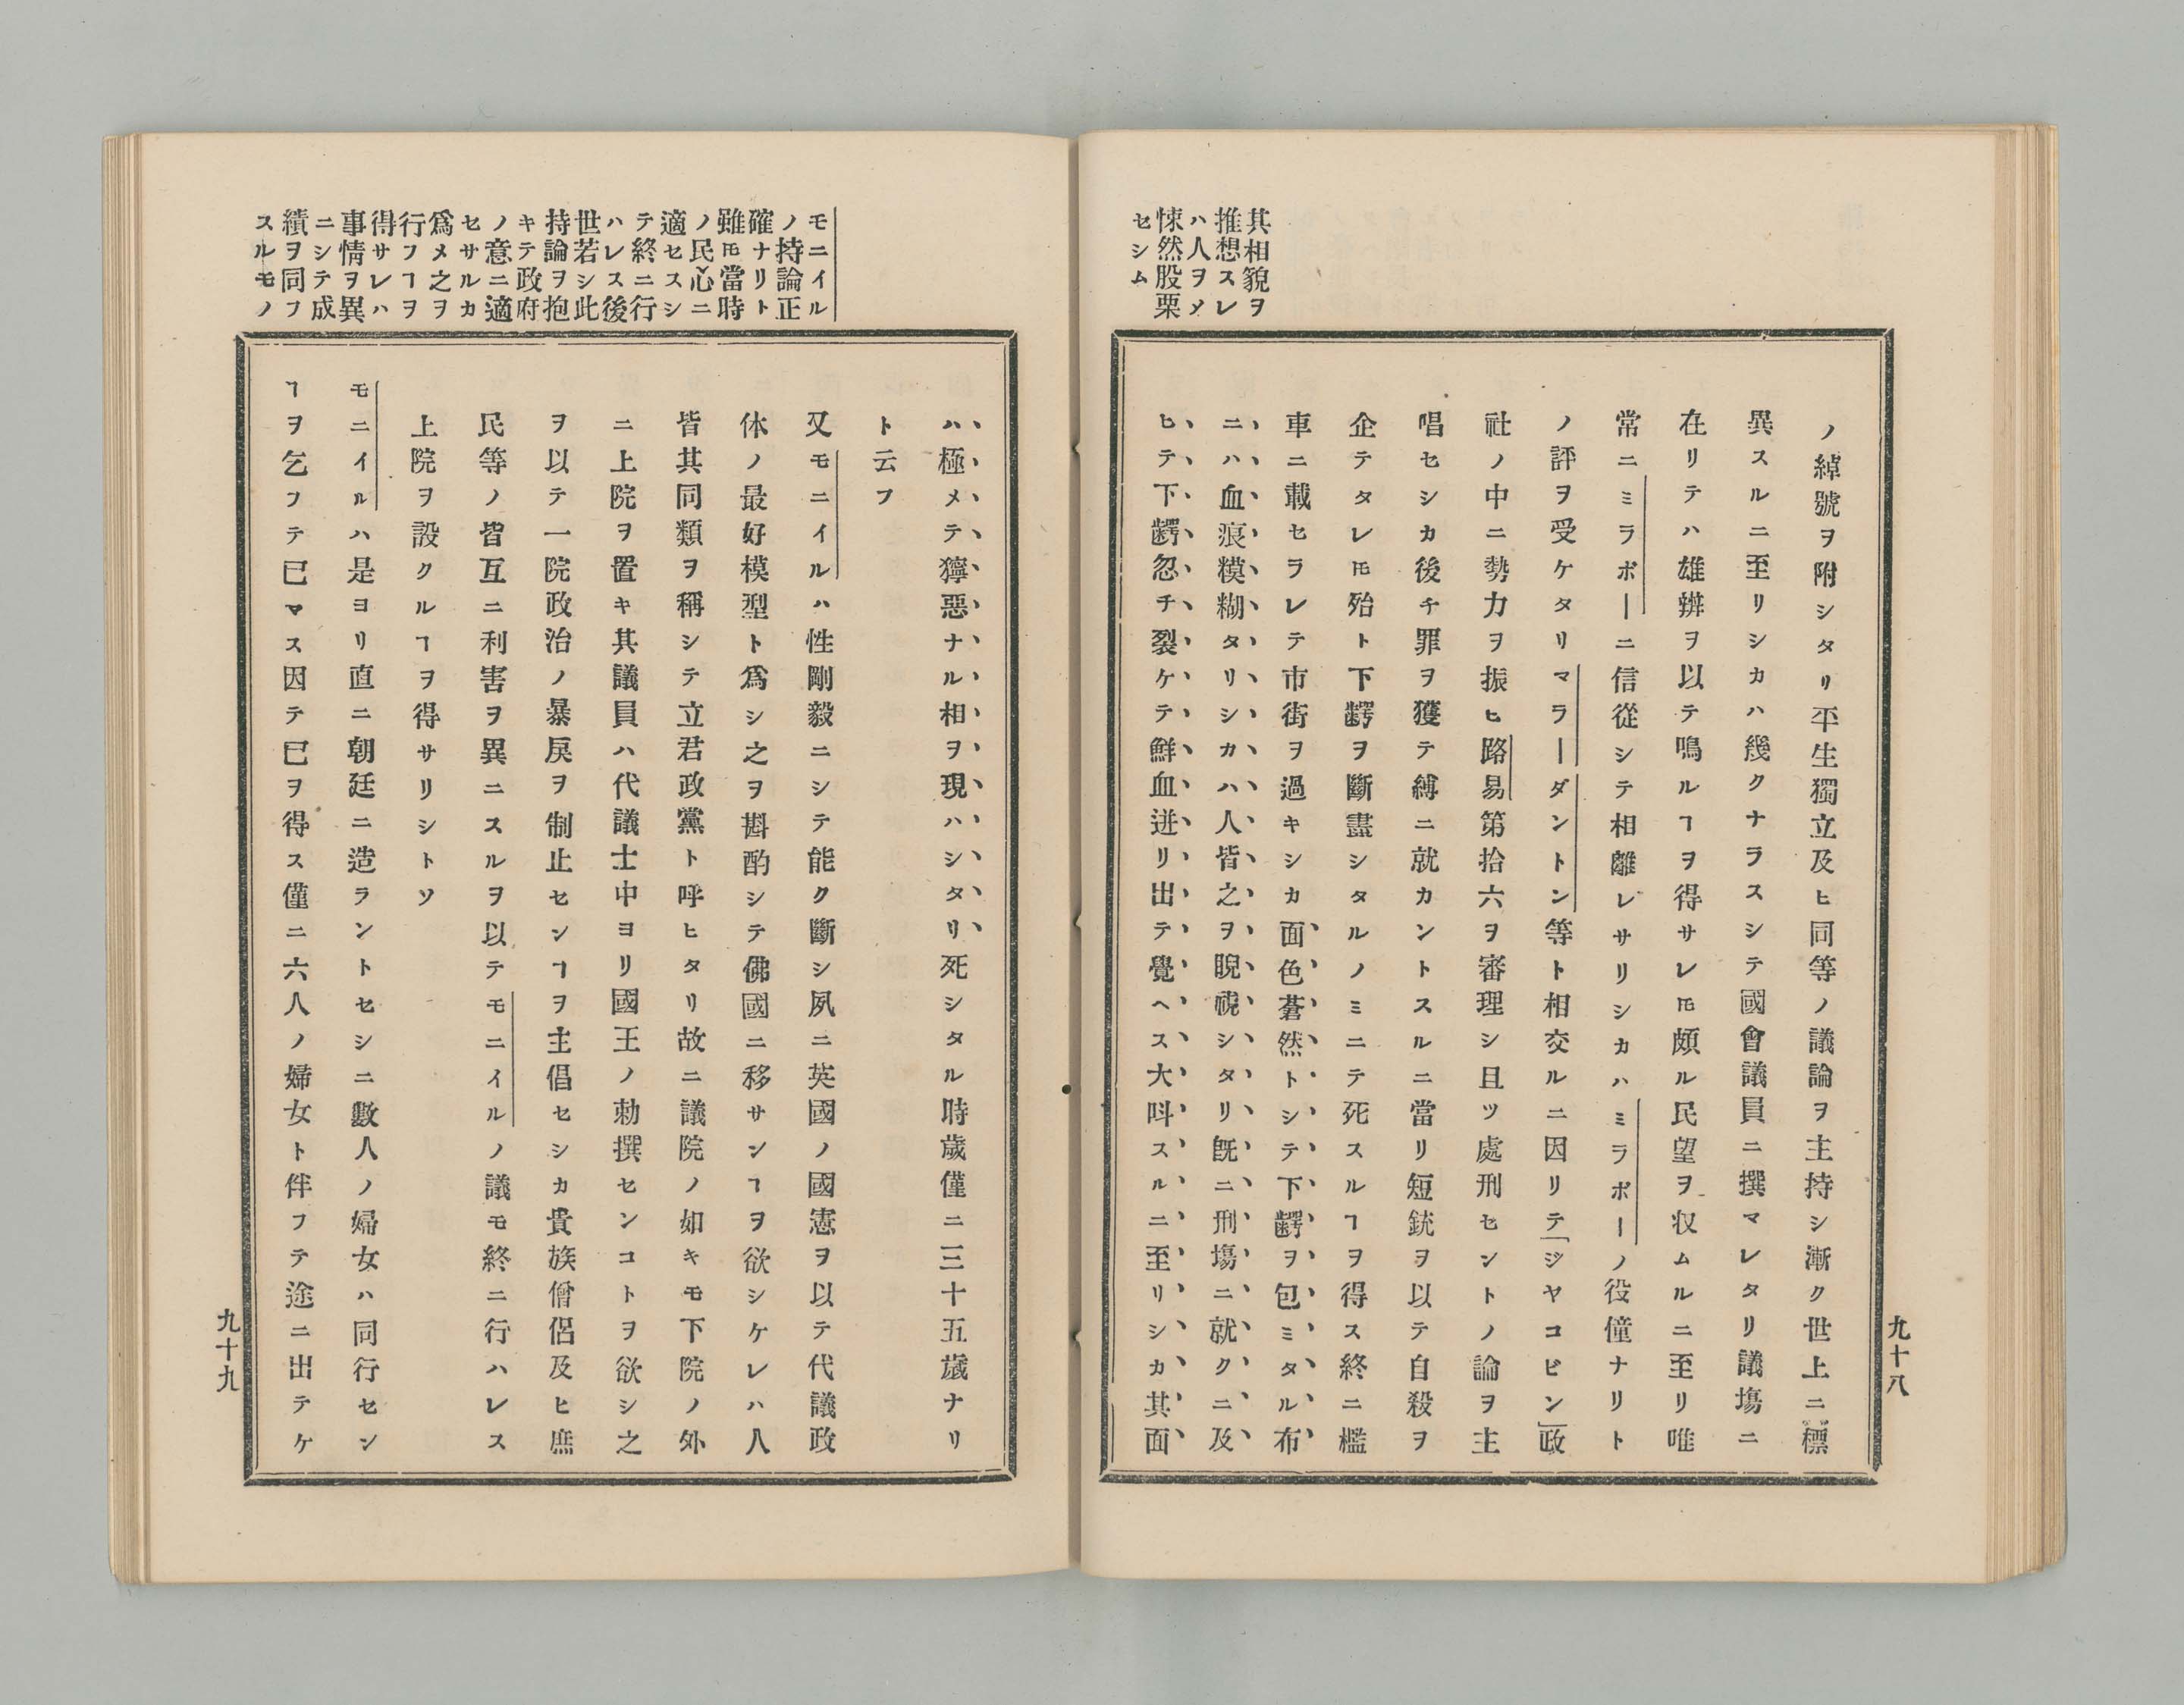 其相貌ヲ
推想スレ
ハ人ヲメ
悚然股栗
セシム
ノ綽號ヲ附シタリ平生獨立及ヒ同等ノ議論ヲ主持シ漸ク世上ニ標
異スルニ至リシカハ幾クナラスシテ國會議員ニ撰マレタリ議塲ニ
在リテハ雄辨ヲ以テ鳴ルヿヲ得サレ𪜈頗ル民望ヲ収ムルニ至リ唯
常ニミラボーニ信從シテ相離レサリシカハミラボーノ役僮ナリト
ノ評ヲ受ケタリマラーダントン等ト相交ルニ因リテ「ジヤコビン」政
社ノ中ニ勢力ヲ振ヒ路易第拾六ヲ審理シ且ツ處刑セントノ論ヲ主
唱セシカ後チ罪ヲ獲テ縛ニ就カントスルニ當リ短銃ヲ以テ自殺ヲ
企テタレ𪜈殆ト下齶ヲ斷盡シタルノミニテ死スルヿヲ得ス終ニ檻
車ニ載セラレテ市街ヲ過キシカ面色蒼然トシテ下齶ヲ包ミタル布
ニハ血痕糢糊タリシカハ人皆之ヲ睨視シタリ既ニ刑塲ニ就クニ及
ヒテ下齶忽チ裂ケテ鮮血迸リ出テ覺ヘス大呌スルニ至リシカ其面
九十八
モニイル
ノ持論正
確ナリト
雖𪜈當時
ノ民心ニ
適セスシ
テ終ニ行
ハレス後
世若シ此
持論ヲ抱
キテ政府
ノ意ニ適
セサルカ
爲メ之ヲ
行フヿヲ
得サレハ
事情ヲ異
ニシテ成
績ヲ同フ
スルモノ
ハ極メテ獰惡ナル相ヲ現ハシタリ死シタル時歲僅ニ三十五歲ナリ
ト云フ
又モニイルハ性剛毅ニシテ能ク斷シ夙ニ英國ノ國憲ヲ以テ代議政
体ノ最好模型ト爲シ之ヲ斟酌シテ佛國ニ移サンヿヲ欲シケレハ人
皆其同類ヲ稱シテ立君政黨ト呼ヒタリ故ニ議院ノ如キモ下院ノ外
ニ上院ヲ置キ其議員ハ代議士中ヨリ國王ノ勅撰センコトヲ欲シ之
ヲ以テ一院政治ノ暴戻ヲ制止センヿヲ主倡セシカ貴族僧侶及ヒ庶
民等ノ皆互ニ利害ヲ異ニスルヲ以テモニイルノ議モ終ニ行ハレス
上院ヲ設クルヿヲ得サリシトソ
モニイルハ是ヨリ直ニ朝廷ニ造ラントセシニ數人ノ婦女ハ同行セン
ヿヲ乞フテ已マス因テ已ヲ得ス僅ニ六人ノ婦女ト伴フテ途ニ出テケ
九十九